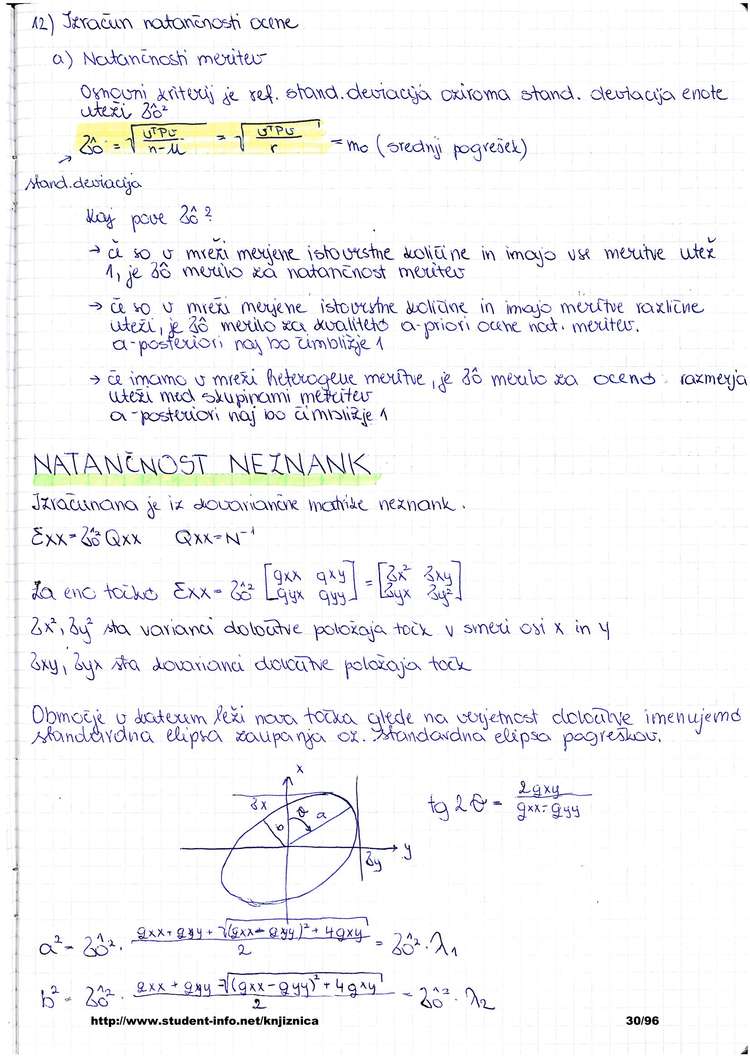 12) Izračun natančnosti ocene
a) Natančnosti meritev
Osnovni kriterij je ref. stand. deviacija oziroma stand. deviacija enote
uteži σ̂₀²
σ̂₀ = √(vᵀPv / n-u) = √(vᵀPv / r) = m₀ (srednji pogrešek)
stand. deviacija
Kaj pove σ̂₀?
→ če so v mreži merjene istovrstne količine in imajo vse meritve utež
1, je σ̂₀ merilo za natančnost meritev
→ če so v mreži merjene istovrstne količine in imajo meritve različne
uteži, je σ̂₀ merilo za kvaliteto a-priori ocene nat. meritev.
a-posteriori naj bo čimbližje 1
→ če imamo v mreži heterogene meritve, je σ̂₀ merilo za oceno razmerja
uteži med skupinami meritev
a-posteriori naj bo čimbližje 1
NATANČNOST NEZNANK
Izračunana je iz kovariančne matrike neznank.
Σxx = σ̂₀² Qxx Qxx = N⁻¹
Za eno točko Σxx = σ̂₀² [qxx qxy; qyx qyy] = [σx² σxy; σyx σy²]
σx², σy² sta varianci določitve položaja točk v smeri osi x in y
σxy, σyx sta kovarianci določitve položaja točk
Območje v katerem leži nova točka glede na verjetnost določitve imenujemo
standardna elipsa zaupanja oz. standardna elipsa pogreškov.
x
σx
b θ a
y
σy
tg 2θ = 2qxy / qxx - qyy
a² = σ̂₀² · (qxx + qyy + √((qxx - qyy)² + 4qxy)) / 2 = σ̂₀² · λ₁
b² = σ̂₀² · (qxx + qyy - √((qxx - qyy)² + 4qxy)) / 2 = σ̂₀² · λ₂
http://www.student-info.net/knjiznica
30/96